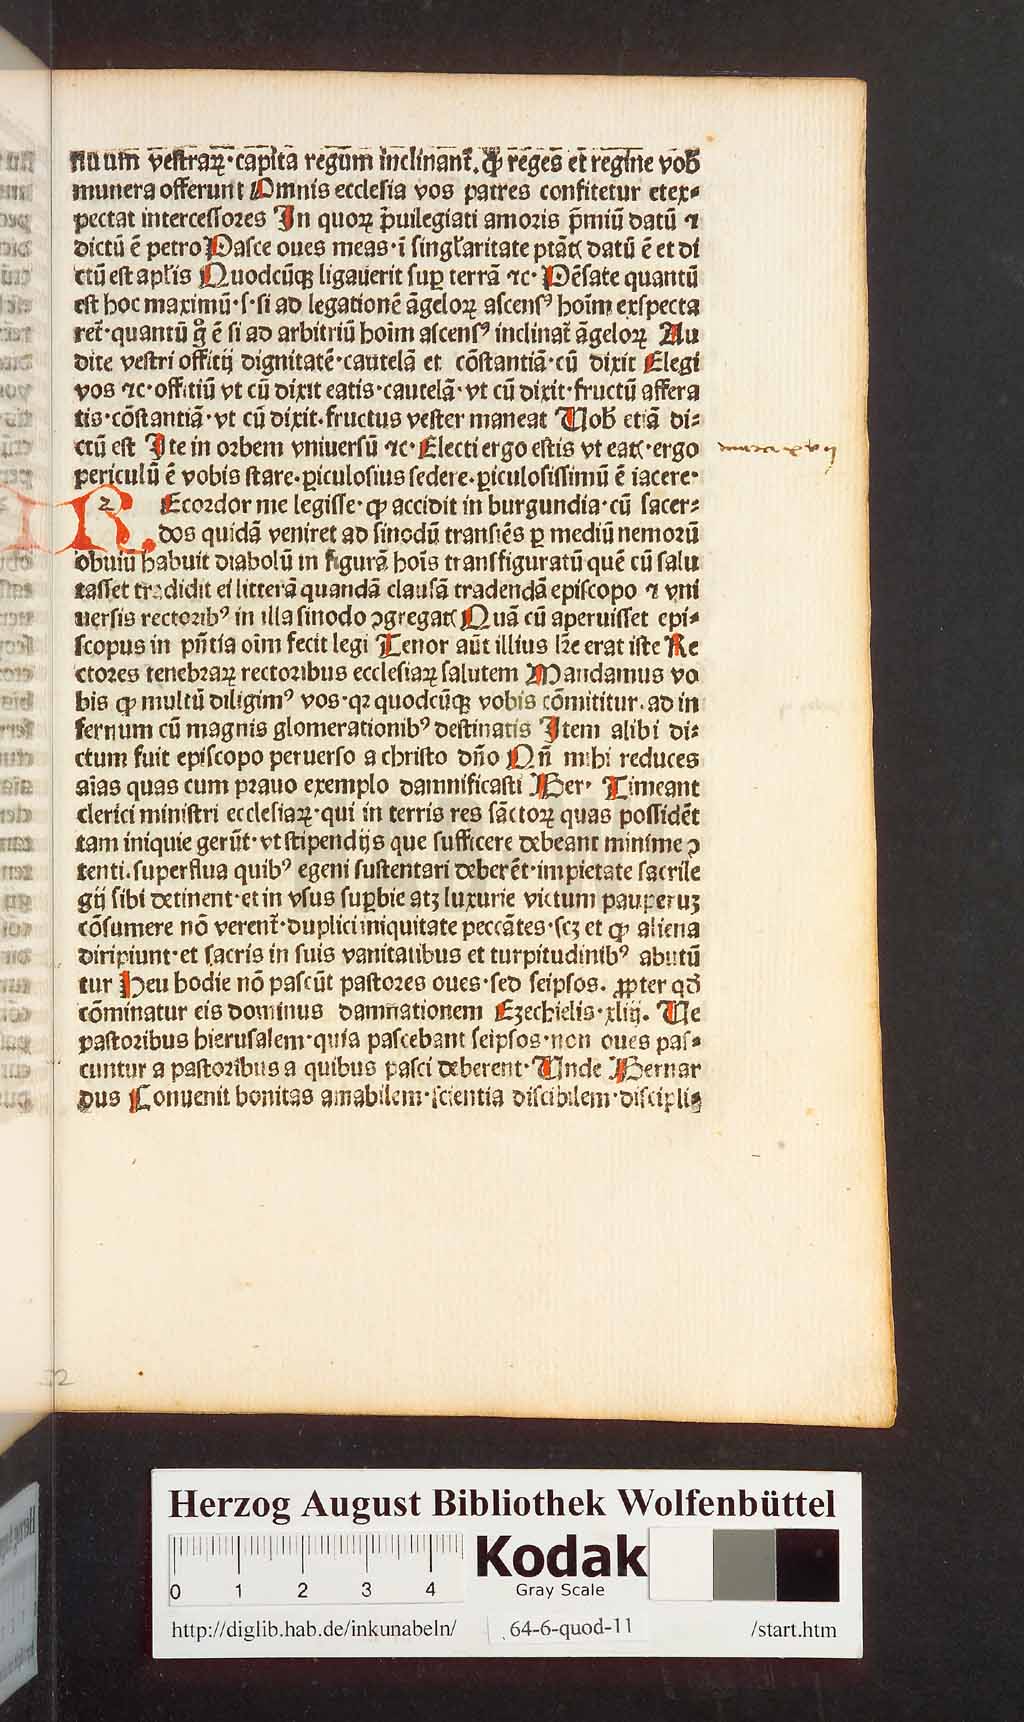 nuum vestraꝝ·capita regum inclinant̄. ꝙ reges et regine vob̄
munera offerunt Omnis ecclesia vos patres confitetur etex⸗
pectat intercessores In quoꝝ p̄uilegiati amoris p̄miū datū ⁊
dictū ē petro Pasce oues meas·ī singlaritate p̄tāt( datū ē et di
ctū est apl̄is Quodcūqꝫ ligauerit suꝑ terrā ⁊c·Pēsate quantū
est hoc maximū·s·si ad legationē āgeloꝝ ascensꝰ hoīm exspecta
ret̄·quantū gͦ ē si ad arbitriū hoīm ascensꝰ inclinat̄ āgeloꝝ Au
dite vestri offitij dignitatē·cautelā et cōstantiā·cū dixit Elegi
vos ⁊c·offitiū vt cū dixit eatis·cautelā·vt cū dixit·fructū affera
tis·cōstantiā·vt cū dixit·fructus vester maneat Vob̄ etiā di⸗
ctū est Ite in orbem vniuersū ⁊c·Electi ergo estis vt eat(·ergo
periculū ē vobis stare·ꝑiculosius sedere·ꝑiculosissimū ē iacere·
REcordor me legisse·ꝙ accidit in burgundia·cū sacer⸗
dos quidā veniret ad sinodū transiēs ꝑ mediū nemorū
obuiū habuit diabolū in figurā hoīs transfiguratū quē cū salu
tasset tradidit ei litterā quandā clausā tradendā episcopo ⁊ vni
uersis rectoribꝰ in illa sinodo ↄgregat( Quā cū aperuisset epi⸗
scopus in pn̄tia oīm fecit legi Tenor aūt illius lr̄e erat iste Re
ctores tenebraꝝ rectoribus ecclesiaꝝ salutem Mandamus vo
bis ꝙ multū diligimꝰ vos·qꝛ quodcūqꝫ vobis cōmititur·ad in
fernum cū magnis glomerationibꝰ destinatis Item alibi di⸗
ctum fuit episcopo peruerso a christo dn̄o Qn̄ mihi reduces
aīas quas cum prauo exemplo damnificasti Ber· Timeant
clerici ministri ecclesiaꝝ·qui in terris res sāctoꝝ quas possidēt
tam iniquie gerūt·vt stipendijs que sufficere debeant minime ↄ
tenti·superflua quibꝰ egeni sustentari deberēt·impietate sacrile
gij sibi detinent·et in vsus suꝑbie atꝫ luxurie victum pauperuꝫ
cōsumere nō verent̄·duplici iniquitate peccātes·scꝫ et ꝙ aliena
diripiunt·et sacris in suis vanitatibus et turpitudinibꝰ abutū
tur Heu hodie nō pascūt pastores oues·sed seipsos. ꝓpter qd̄
cōminatur eis dominus damn̄ationem Ezechielis·xliij. Ve
pastoribus hierusalem·quia pascebant seipsos·non oues pas⸗
cuntur a pastoribus a quibus pasci deberent·Unde Bernar
dus Conuenit bonitas amabilem·scientia discibilem·discipli⸗
Herzog August Bibliothek Wolfenbüttel
0 1 2 3 4
Kodak
Gray Scale
http://diglib.hab.de/inkunabeln/ 64-6-quod-11 /start.htm